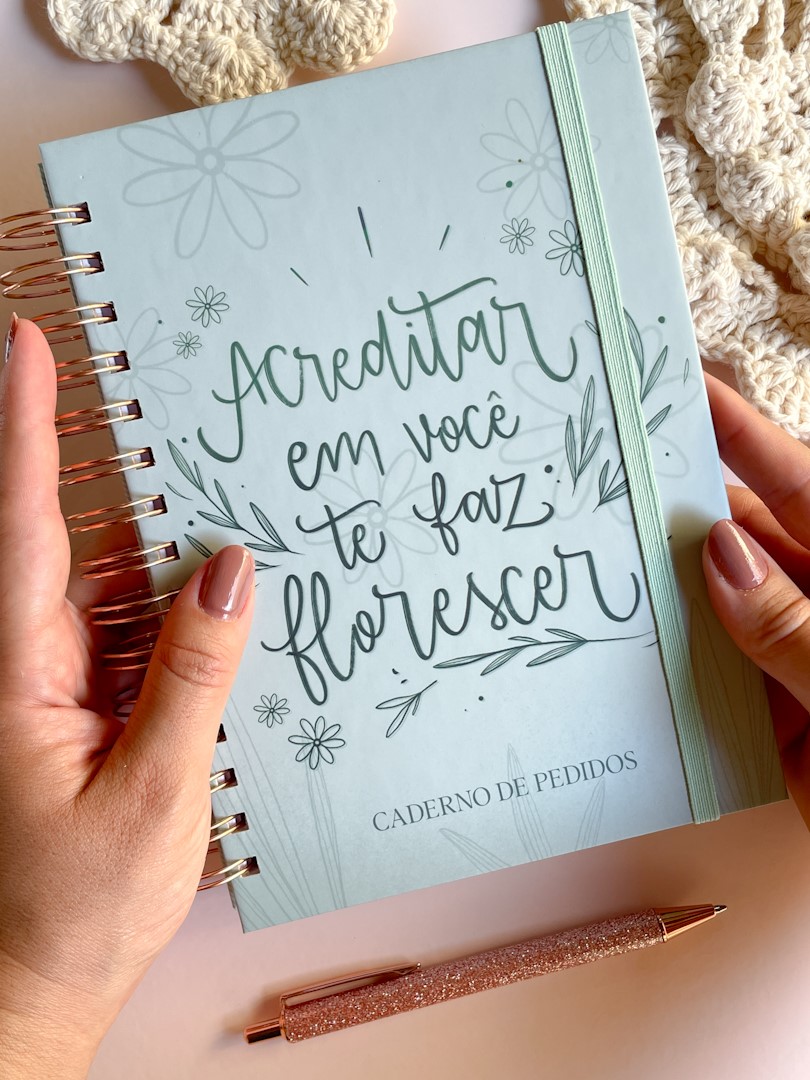 Acreditar
em você
te faz
florescer
CADERNO DE PEDIDOS